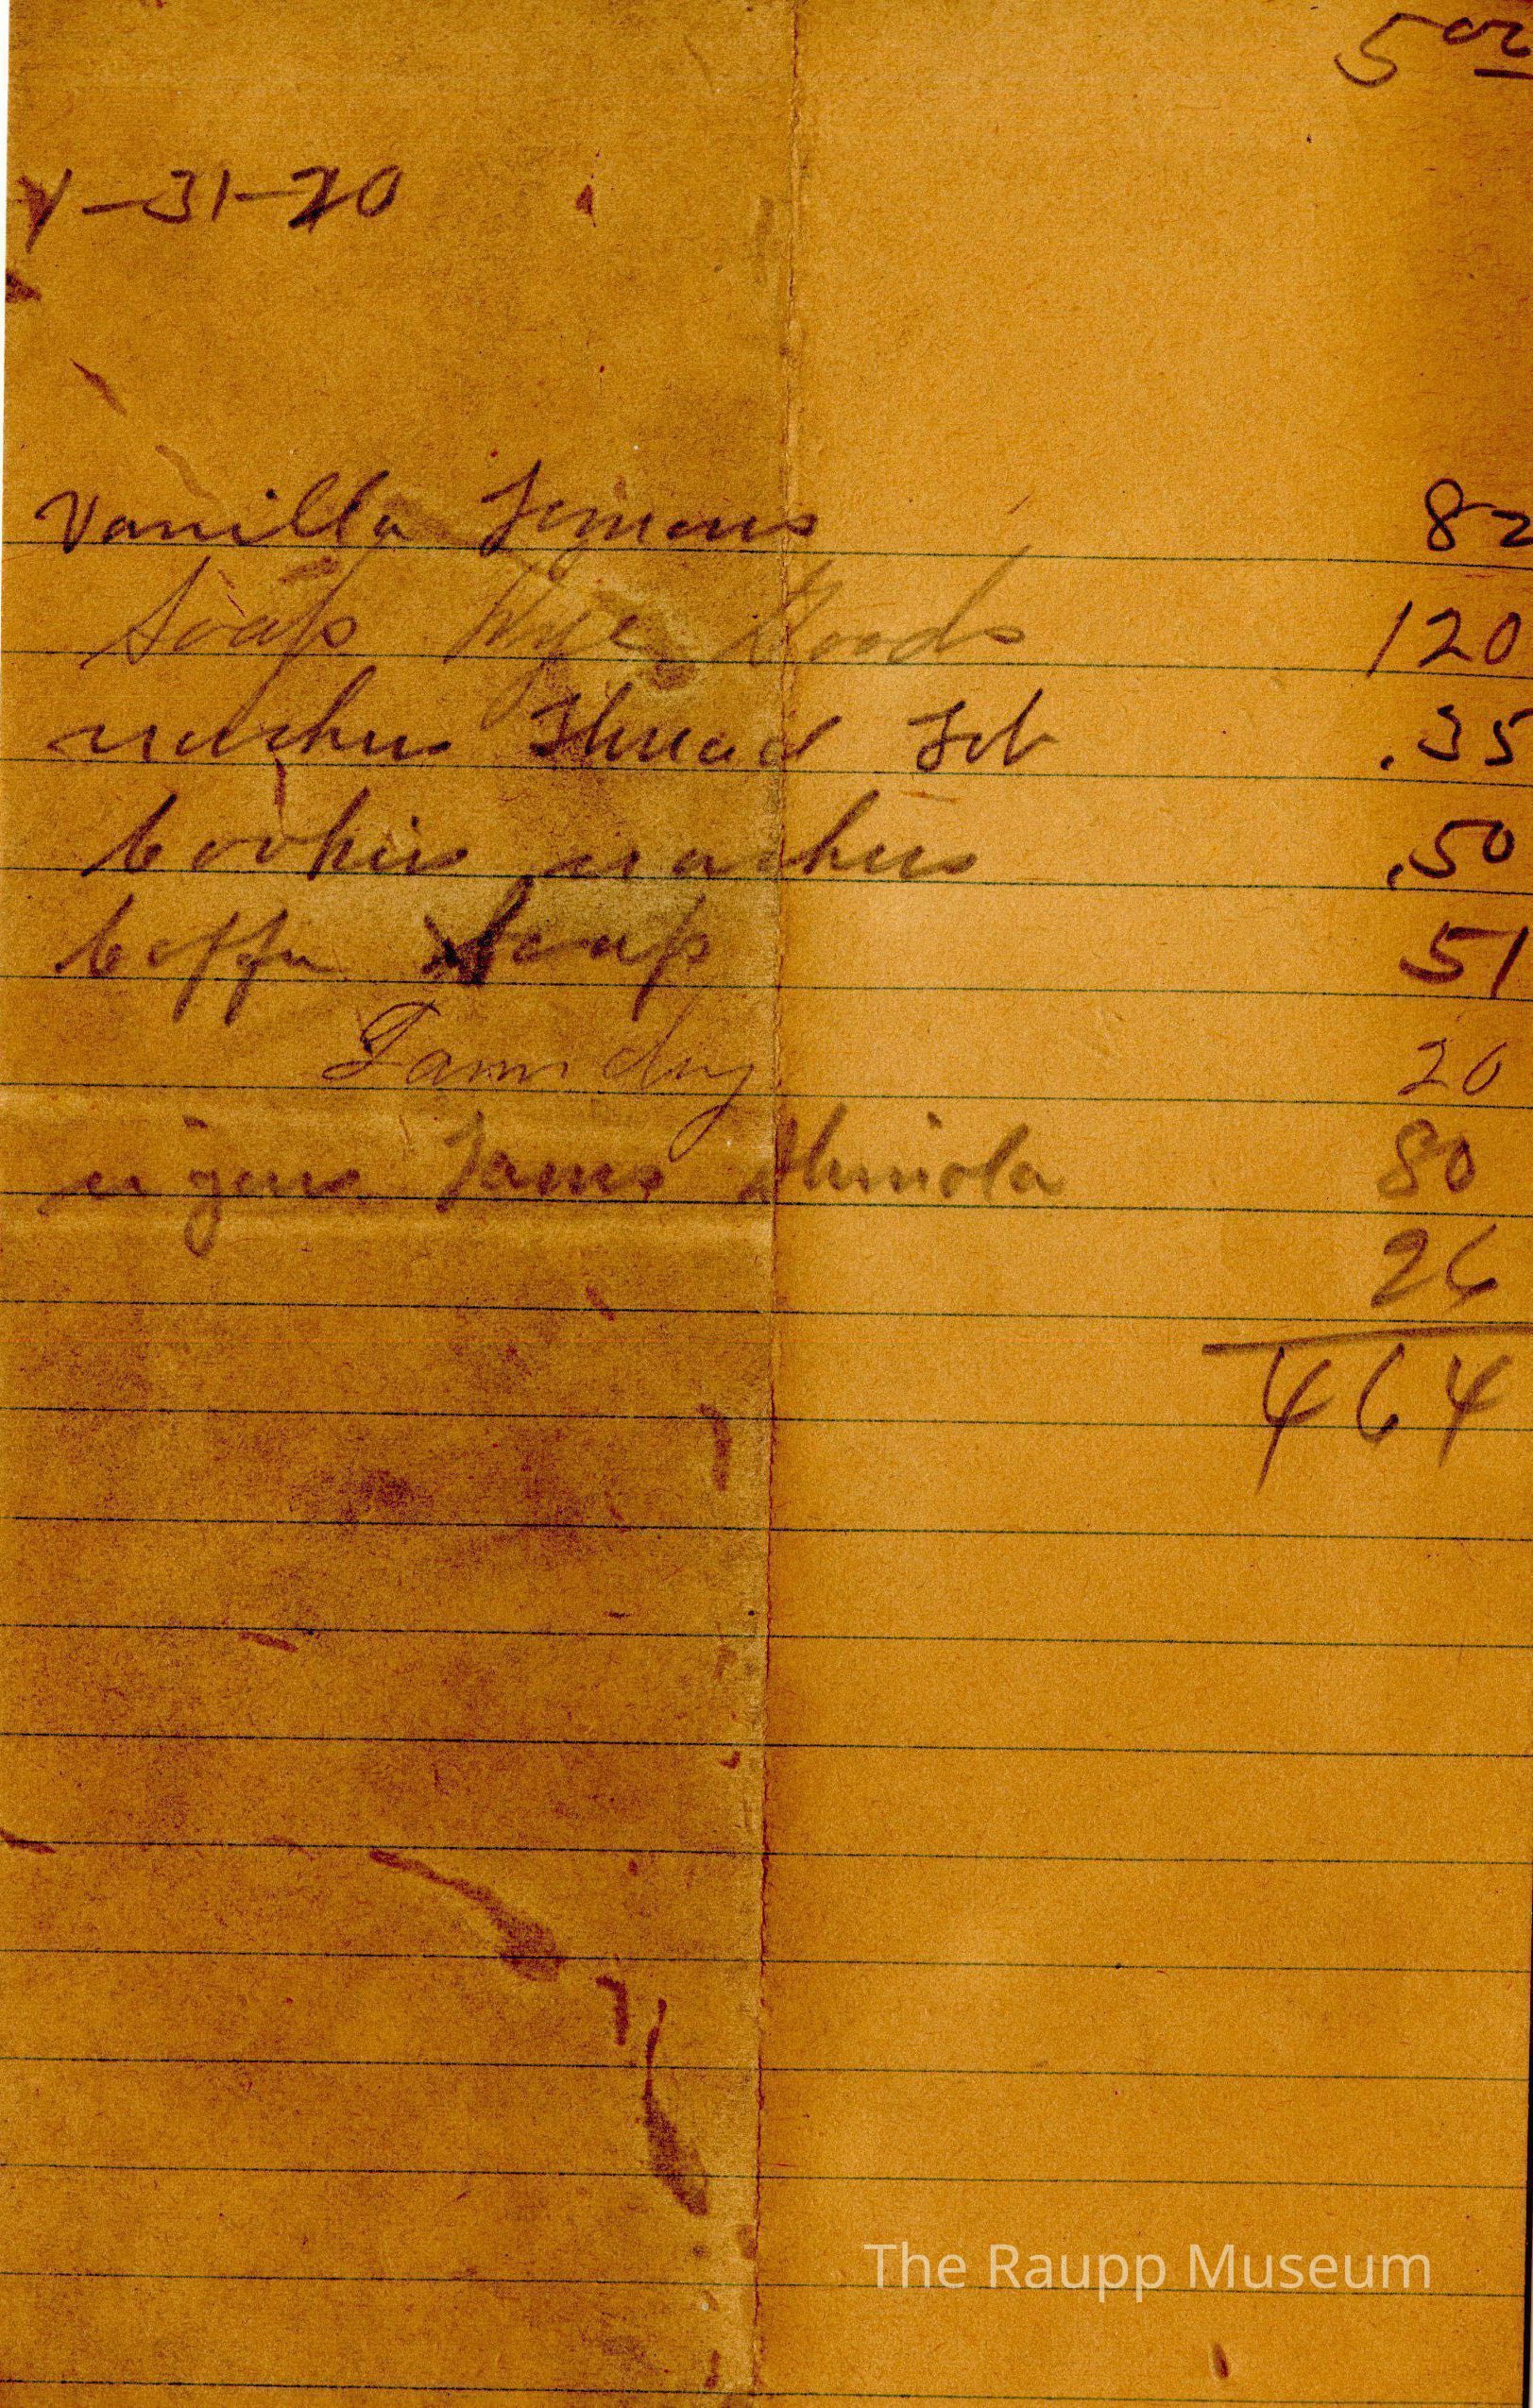 5 00
-31-20
Vanilla Lemons 82
Soap Goods 120
Thread .35
Cookies .50
Coffee Soap 51
Laundry 20
80
26
464
The Raupp Museum